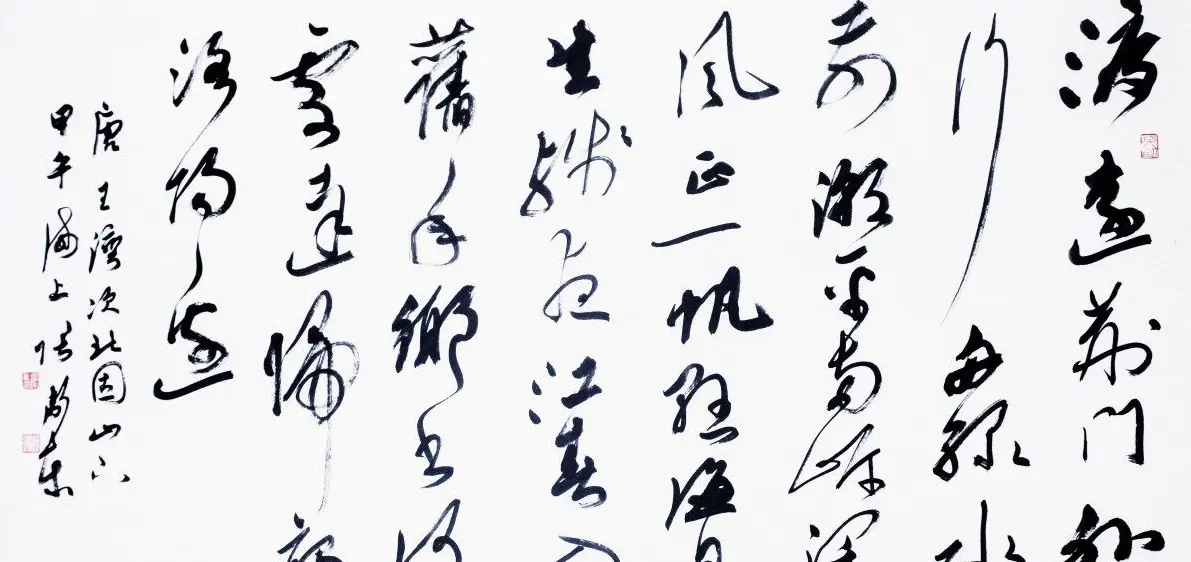 渡遠荊門外
行舟綠水
前潮平兩岸闊
風正一帆懸海日
生殘夜江春入
舊年鄉書何
處達歸雁
洛陽邊
唐王灣次北固山下
甲午海上